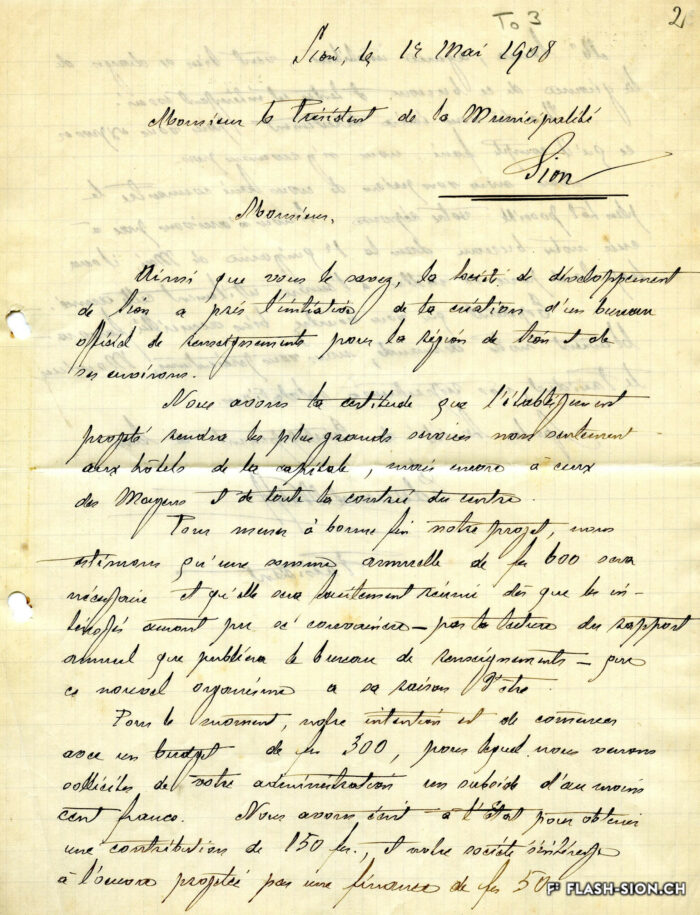 To 3
2
Sion, le 15 Mai 1908
Monsieur le Président de la Municipalité
Sion
Monsieur,
Ainsi que vous le savez, la Société de développement
de Sion a pris l'initiative de la création d'un bureau
officiel de renseignements pour la région de Sion et de
ses environs.
Nous avons la certitude que l'établissement
projeté rendra les plus grands services non seulement
aux hôtels de la capitale, mais encore à ceux
des Mayens et de toute la contrée du centre.
Pour mener à bonne fin notre projet, nous
estimons qu'une somme annuelle de frs 600 sera
nécessaire et qu'elle sera facilement réunie dès que les in-
téressés auront pu se convaincre – par la lecture du rapport
annuel que publiera le bureau de renseignements – que
ce nouvel organisme a sa raison d'être.
Pour le moment, notre intention est de commencer
avec un budget de frs 300, pour lequel nous venons
solliciter de votre administration un subside d'au moins
cent francs. Nous avons écrit à l'Etat pour obtenir
une contribution de 150 frs., et notre société s'intéresse
à l'œuvre projetée par une finance de frs 50
FLASH-SION.CH